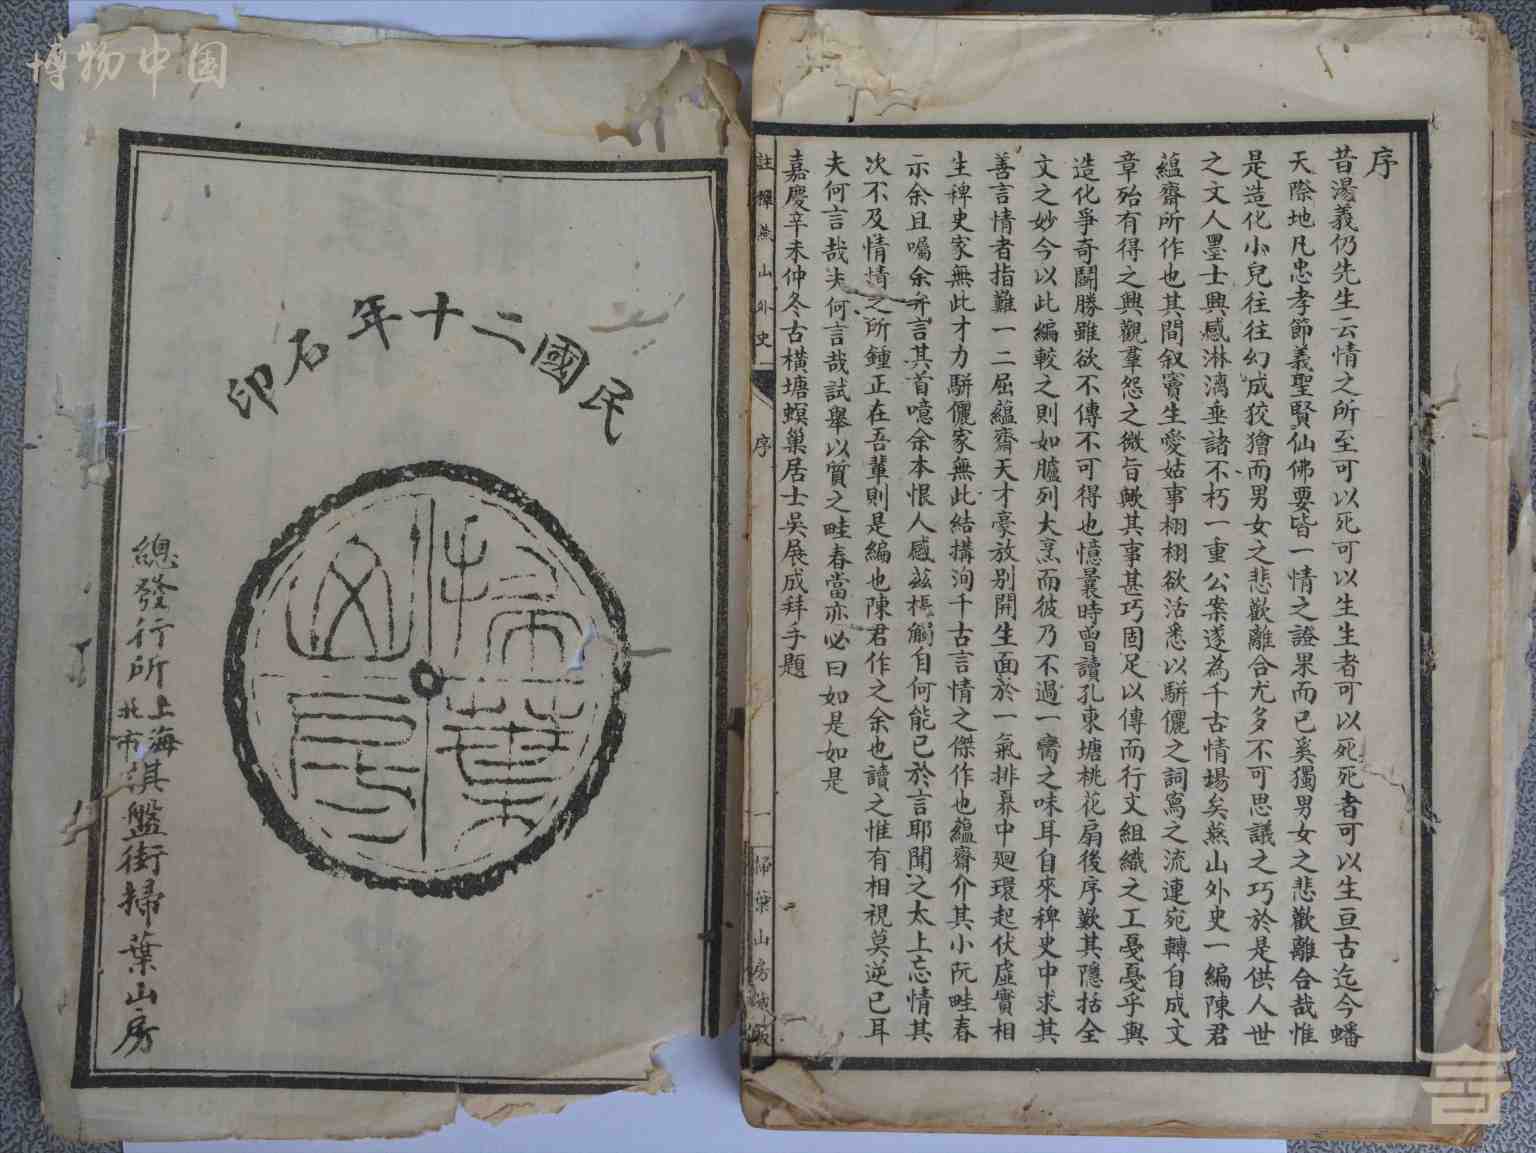 博物中国
序
昔湯義仍先生云情之所至可以死可以生生者可以死死者可以生亘古迄今蟠
天際地凡忠孝節義聖賢仙佛要皆一情之證果而已奚獨男女之悲歡離合哉惟
是造化小兒往往幻成狡獪而男女之悲歡離合尤多不可思議之巧於是供人世
之文人墨士興感淋漓垂諸不朽一重公案遂為千古情場矣燕山外史一編陳君
蘊齋所作也其間叙竇生愛姑事栩栩欲活悉以駢儷之詞寫之流連宛轉自成文
章殆有得之興觀羣怨之微旨歟其事甚巧固足以傳而行文組織之工戞戞乎與
造化爭奇鬪勝雖欲不傳不可得也憶曩時曾讀孔東塘桃花扇後序歎其隱括全
文之妙今以此編較之則如臚列大烹而彼乃不過一臠之味耳自來稗史中求其
善言情者指難一二屈蘊齋天才豪放别開生面於一氣排奡中廻環起伏虛實相
生稗史家無此才力駢儷家無此結搆洵千古言情之傑作也蘊齋介其小阮畦春
示余且囑余弁言其首噫余本恨人感兹棖觸自何能已於言耶聞之太上忘情其
次不及情情之所鍾正在吾輩則是編也陳君作之余也讀之惟有相視莫逆已耳
夫何言哉夫何言哉試舉以質之畦春當亦必曰如是如是
嘉慶辛未仲冬古橫塘螟巢居士吳展成拜手題
註釋燕山外史
序
一
掃葉山房
民國二十年石印
掃葉山房
總發行所上海北市棋盤街掃葉山房